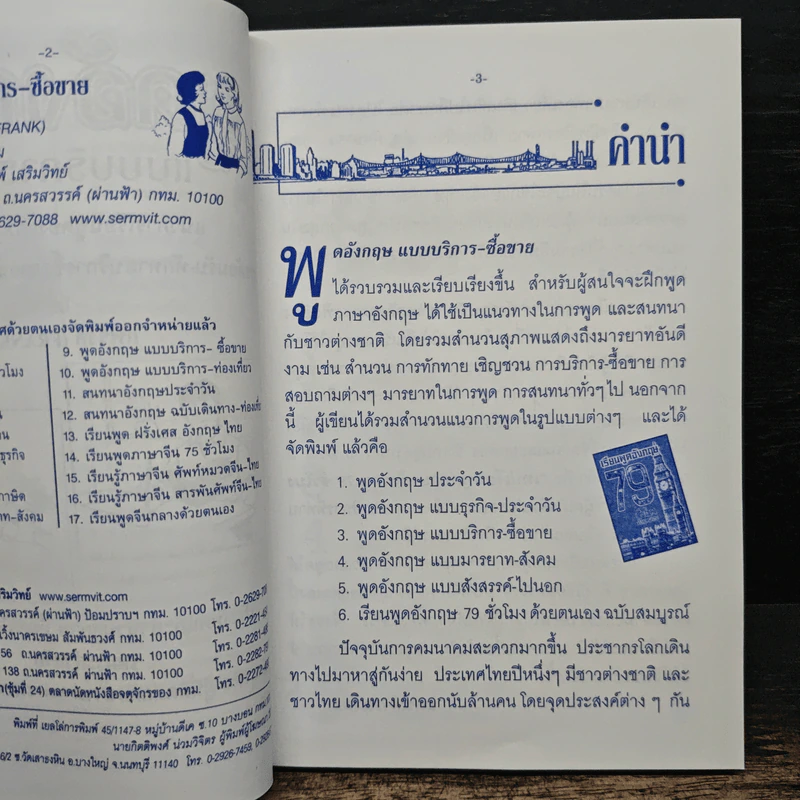 -2-
การ-ซื้อขาย
FRANK)
เสริมวิทย์
ถ.นครสวรรค์ (ผ่านฟ้า) กทม. 10100
629-7088 www.sermvit.com
ด้วยตนเองจัดพิมพ์ออกจำหน่ายแล้ว
9. พูดอังกฤษ แบบบริการ- ซื้อขาย
10. พูดอังกฤษ แบบบริการ-ท่องเที่ยว
11. สนทนาอังกฤษประจำวัน
12. สนทนาอังกฤษ ฉบับเดินทาง-ท่องเที่ยว
13. เรียนพูด ฝรั่งเศส อังกฤษ ไทย
14. เรียนพูดภาษาจีน 75 ชั่วโมง
15. เรียนรู้ภาษาจีน ศัพท์หมวดจีน-ไทย
16. เรียนรู้ภาษาจีน สารพันศัพท์จีน-ไทย
17. เรียนพูดจีนกลางด้วยตนเอง
เสริมวิทย์ www.sermvit.com
นครสวรรค์ (ผ่านฟ้า) ป้อมปราบฯ กทม. 10100 โทร. 0-2629-70
เวิ้งนาครเขษม สัมพันธวงศ์ กทม. 10100 โทร. 0-2221-45
56 ถ.นครสวรรค์ ผ่านฟ้า กทม. 10100 โทร. 0-2281-48
138 ถ.นครสวรรค์ ผ่านฟ้า กทม. 10100 โทร. 0-2282-79
(ซุ้มที่ 24) ตลาดนัดหนังสือจตุจักรของ กทม. โทร. 0-2272-46
พิมพ์ที่ เยลโล่การพิมพ์ 45/1147-8 หมู่บ้านดีเค ซ.10 บางบอน
นายกิตติพงศ์ น่วมวิจิตร ผู้พิมพ์ผู้โฆษณา
6/2 ซ.วัดเสาธงหิน อ.บางใหญ่ จ.นนทบุรี 11140 โทร. 0-2926-7459,
-3-
คำนำ
พูดอังกฤษ แบบบริการ-ซื้อขาย
ได้รวบรวมและเรียบเรียงขึ้น สำหรับผู้สนใจจะฝึกพูด
ภาษาอังกฤษ ได้ใช้เป็นแนวทางในการพูด และสนทนา
กับชาวต่างชาติ โดยรวมสำนวนสุภาพแสดงถึงมารยาทอันดี
งาม เช่น สำนวน การทักทาย เชิญชวน การบริการ-ซื้อขาย การ
สอบถามต่างๆ มารยาทในการพูด การสนทนาทั่วๆ ไป นอกจาก
นี้ ผู้เขียนได้รวมสำนวนแนวการพูดในรูปแบบต่างๆ และได้
จัดพิมพ์ แล้วคือ
เรียนพูดอังกฤษ
79
1. พูดอังกฤษ ประจำวัน
2. พูดอังกฤษ แบบธุรกิจ-ประจำวัน
3. พูดอังกฤษ แบบบริการ-ซื้อขาย
4. พูดอังกฤษ แบบมารยาท-สังคม
5. พูดอังกฤษ แบบสังสรรค์-ไปนอก
6. เรียนพูดอังกฤษ 79 ชั่วโมง ด้วยตนเอง ฉบับสมบูรณ์
ปัจจุบันการคมนาคมสะดวกมากขึ้น ประชากรโลกเดิน
ทางไปมาหาสู่กันง่าย ประเทศไทยปีหนึ่งๆ มีชาวต่างชาติ และ
ชาวไทย เดินทางเข้าออกนับล้านคน โดยจุดประสงค์ต่าง ๆ กัน